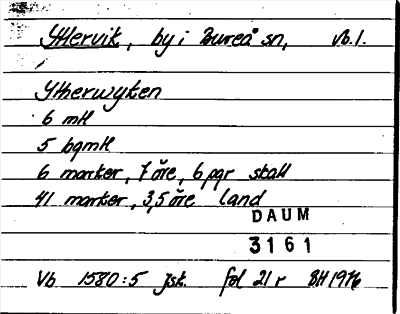 Yttervik, by i Bureå sn, Vb. l.
Ytherwyken
6 mtl
5 bgmtl
6 marker, 7 öre, 6 pgr skatt
41 marker, 3,5 öre land
DAUM
3161
Vb 1580:5 jsk. fol 21 r BH 1976